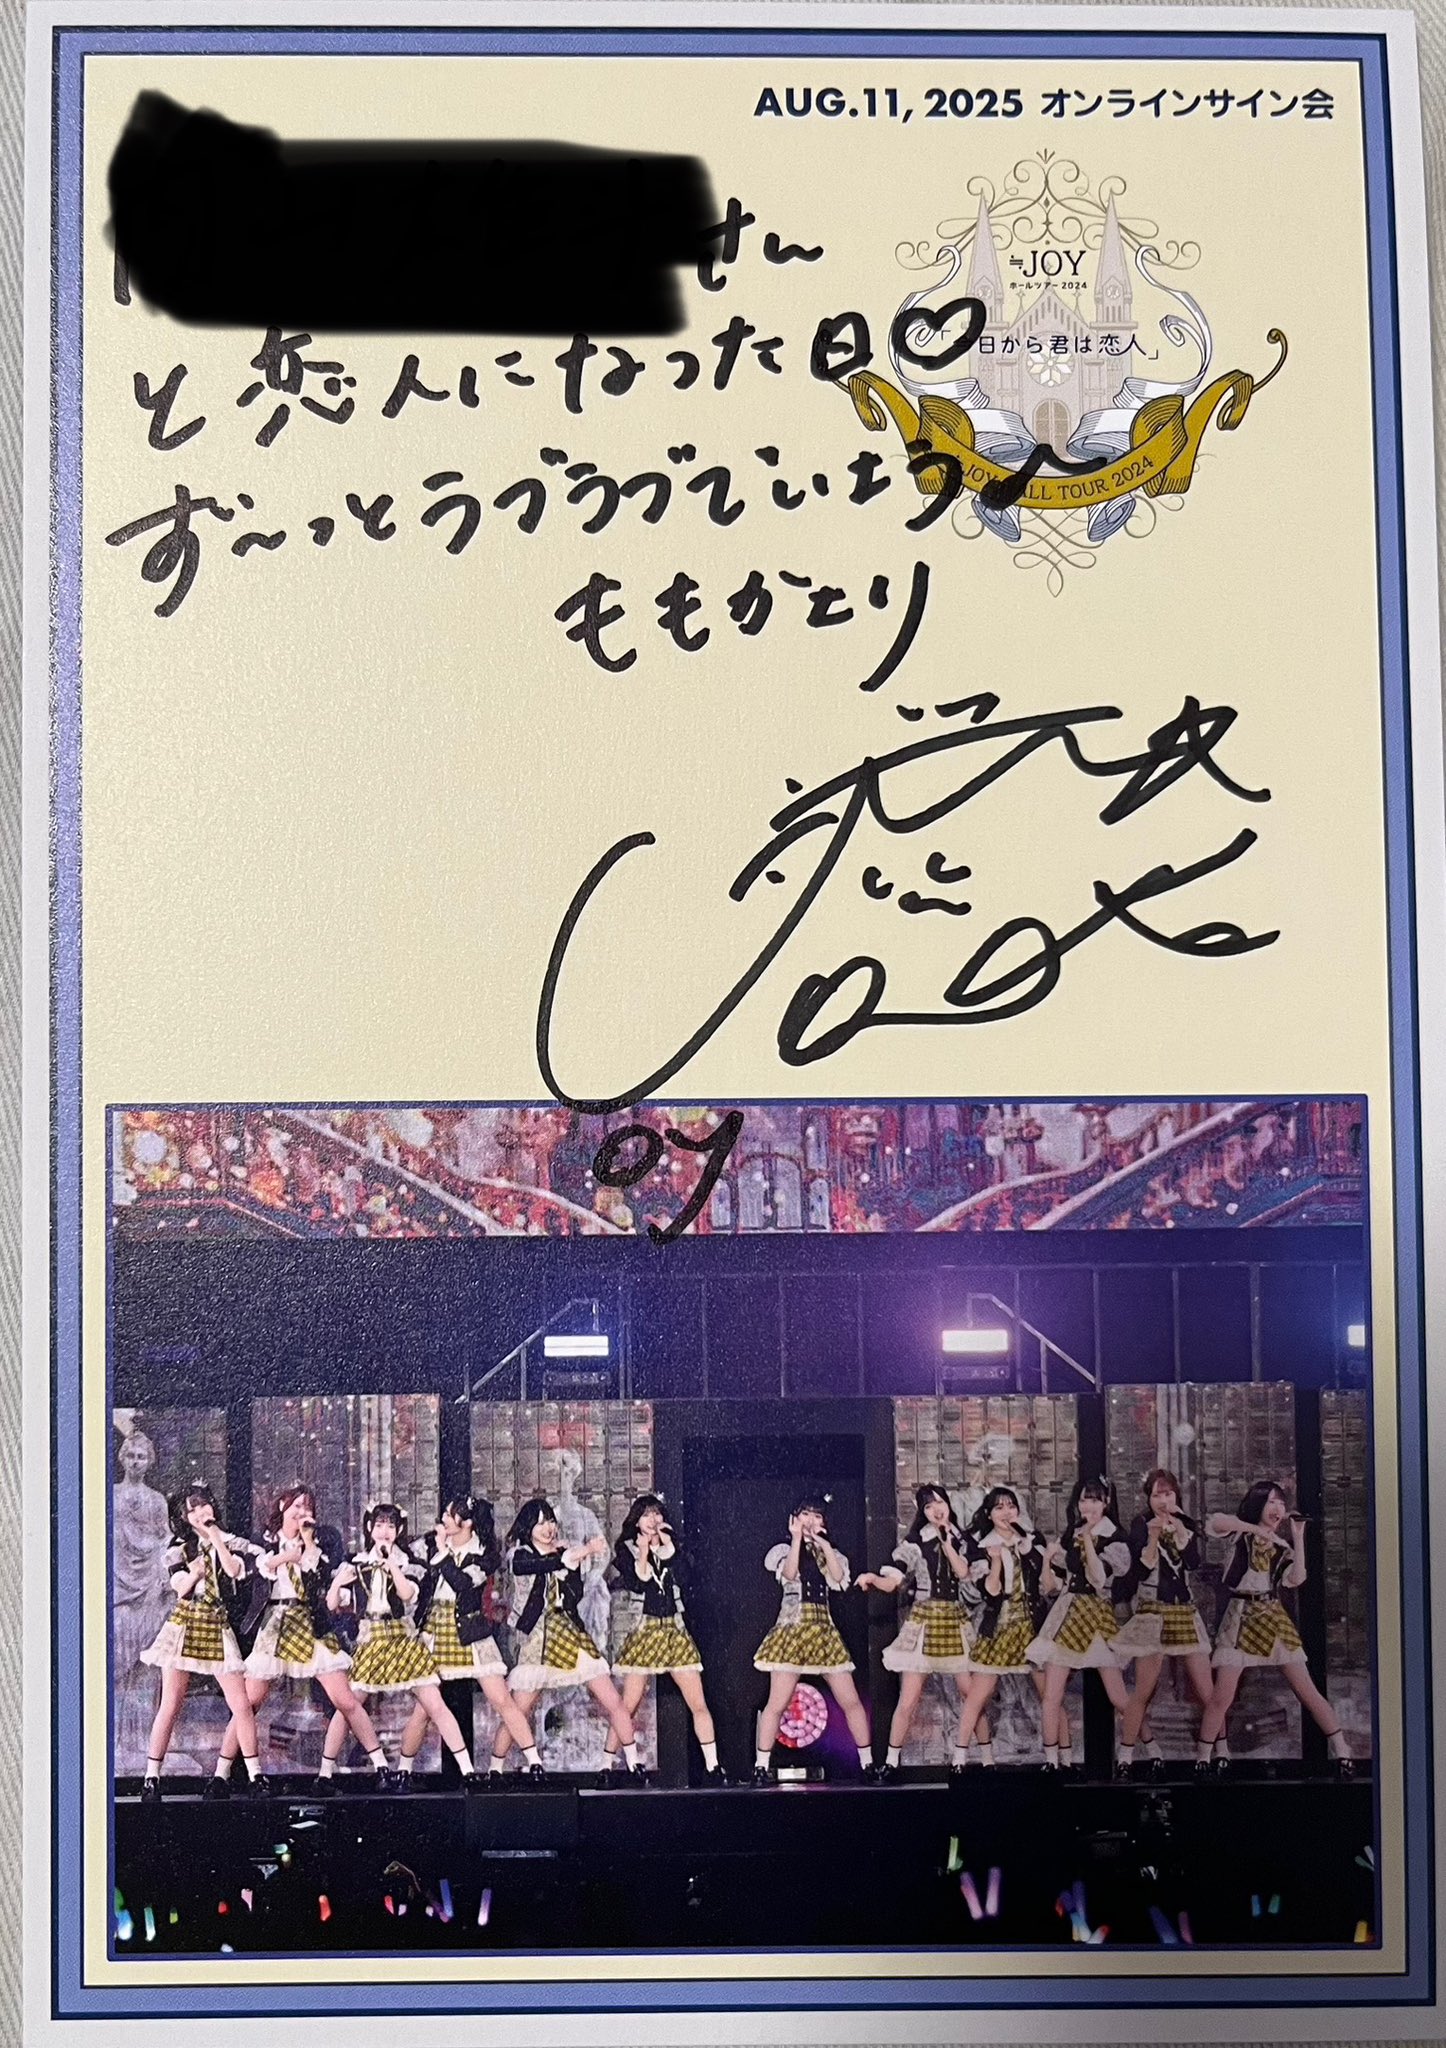 AUG.11, 2025 オンラインサイン会
≒JOY
ホールツアー2024
「今日から君は恋人」
JOY HALL TOUR 2024
さん
と恋人になった日♡
ず〜っとラブラブていようね
ももかより